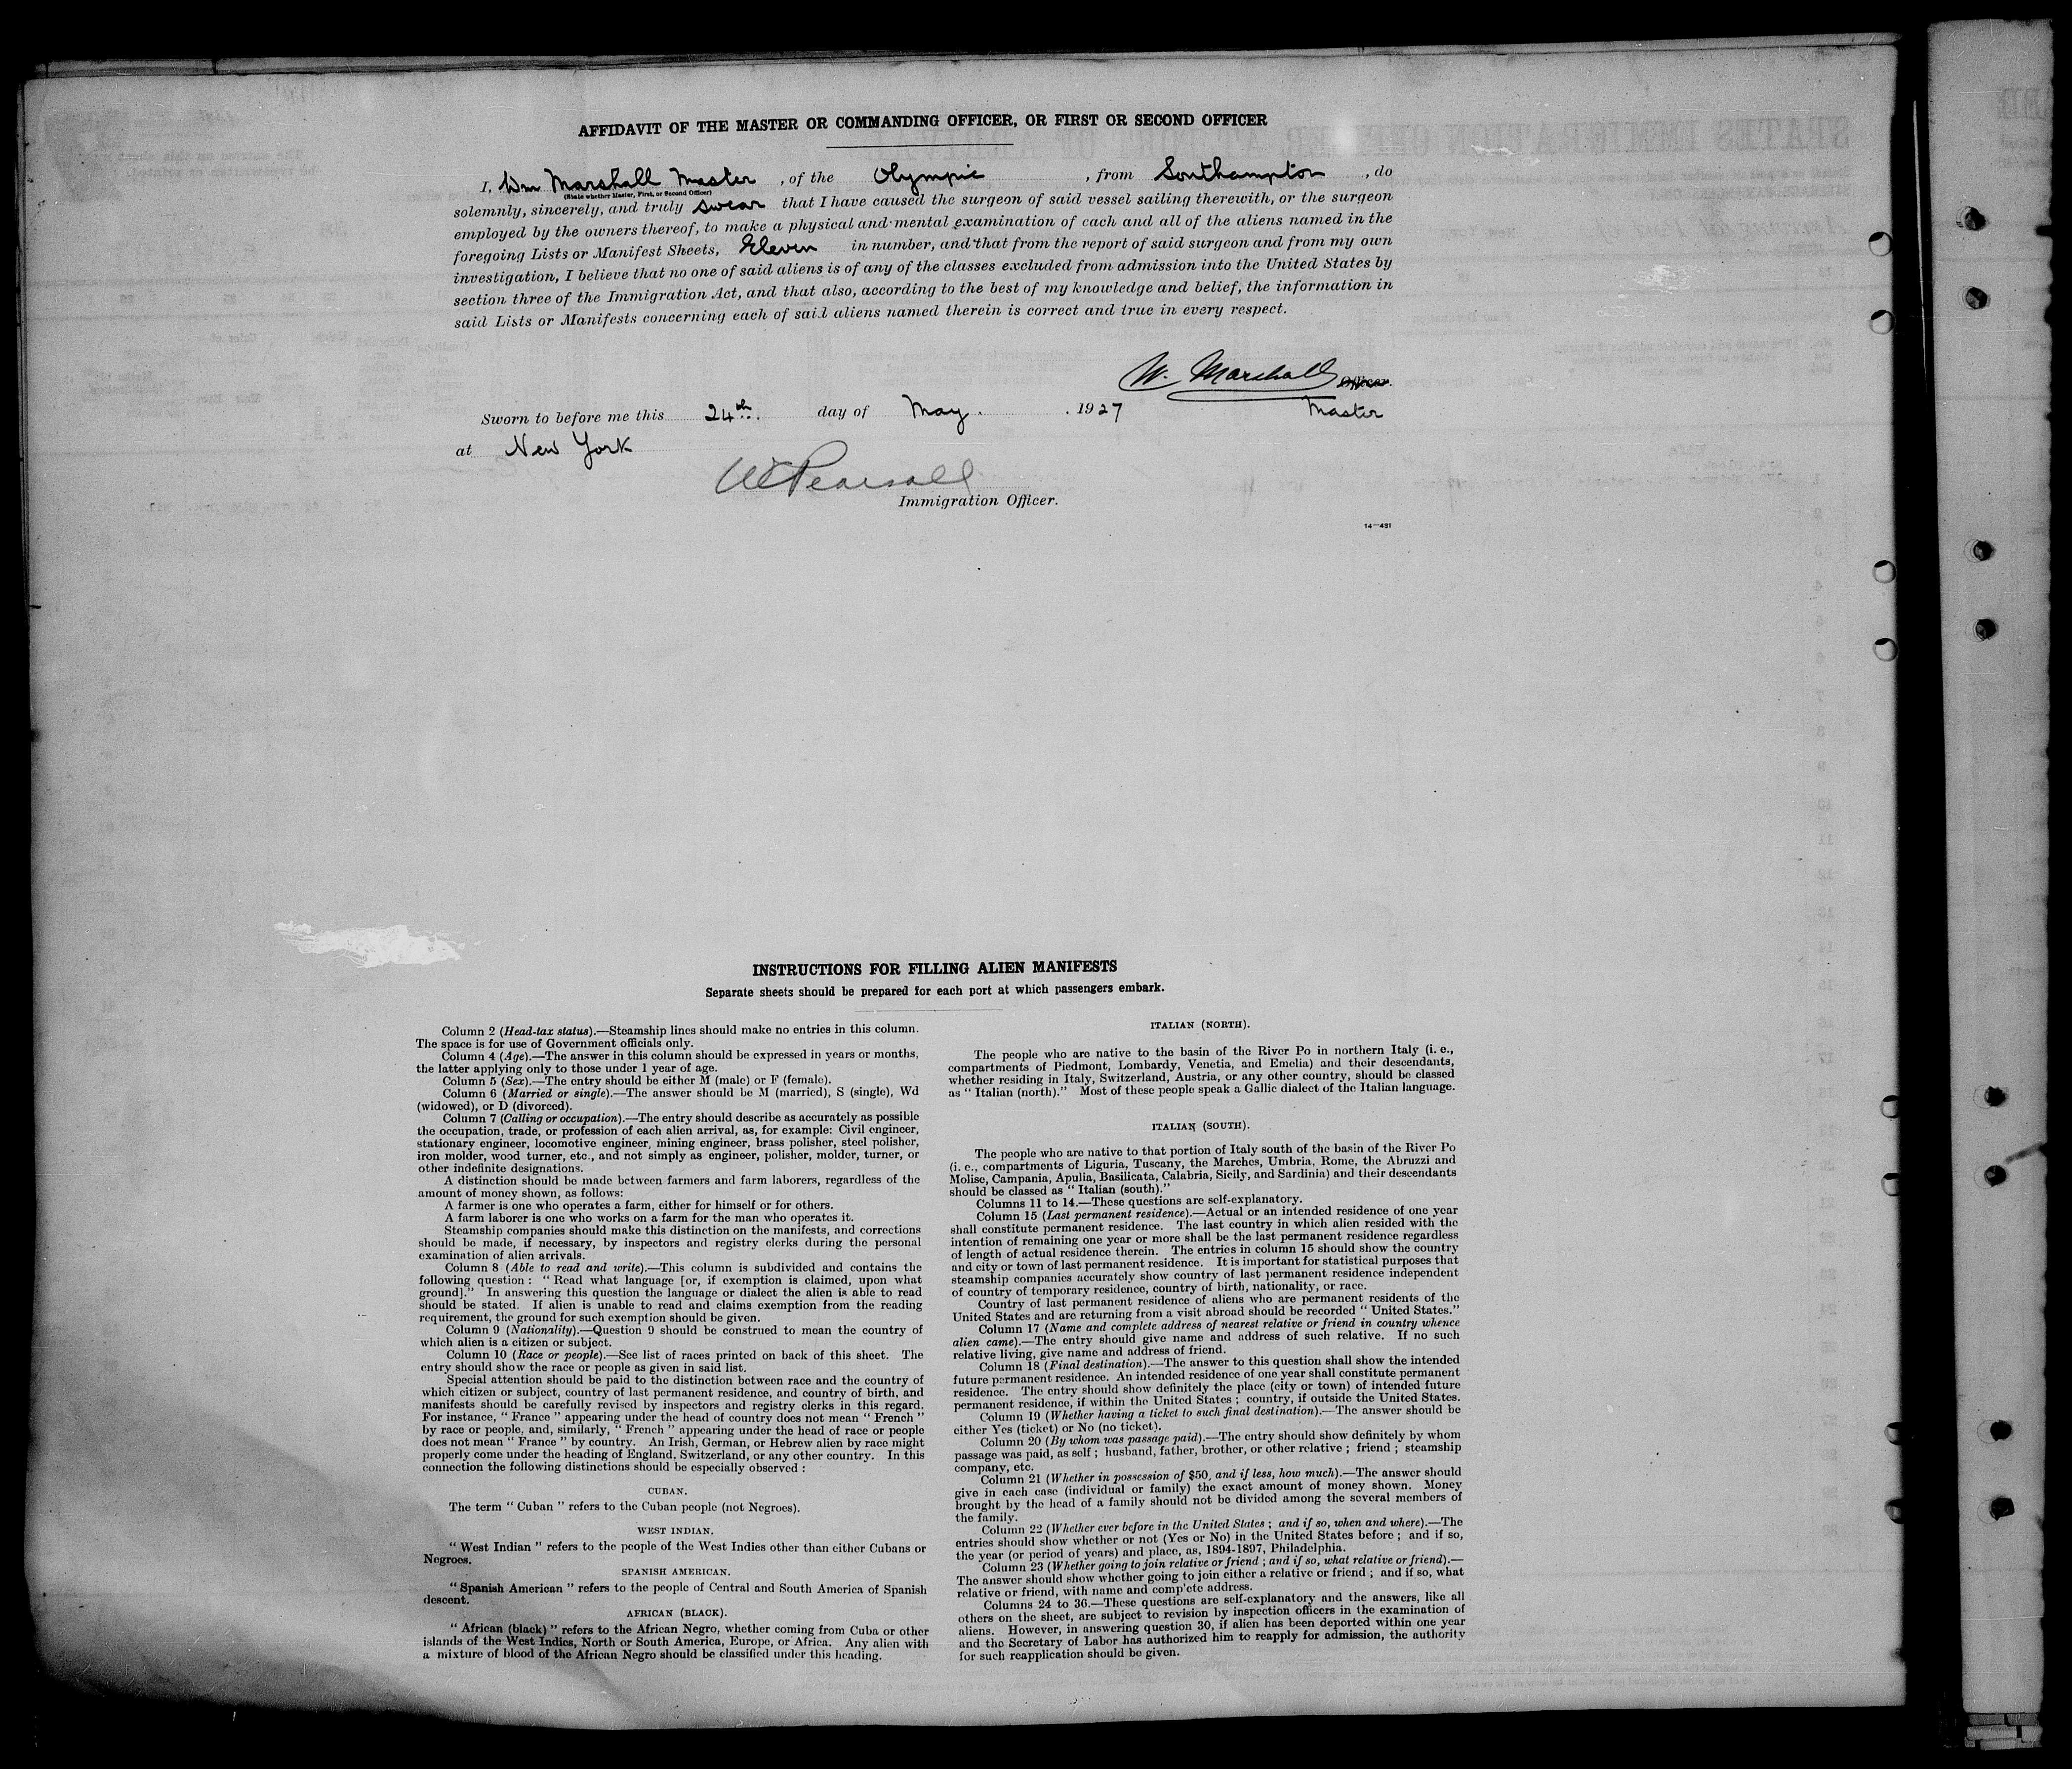 AFFIDAVIT OF THE MASTER OR COMMANDING OFFICER, OR FIRST OR SECOND OFFICER
I, Wm Marshall Master, of the Olympic, from Southampton, do
(State whether Master, First, or Second Officer)
solemnly, sincerely, and truly swear that I have caused the surgeon of said vessel sailing therewith, or the surgeon
employed by the owners thereof, to make a physical and mental examination of each and all of the aliens named in the
foregoing Lists or Manifest Sheets, Eleven in number, and that from the report of said surgeon and from my own
investigation, I believe that no one of said aliens is of any of the classes excluded from admission into the United States by
section three of the Immigration Act, and that also, according to the best of my knowledge and belief, the information in
said Lists or Manifests concerning each of said aliens named therein is correct and true in every respect.
W. Marshall Officer.
Sworn to before me this 24th. day of May. , 1927 Master
at New York
Pearsall
Immigration Officer.
14—431
INSTRUCTIONS FOR FILLING ALIEN MANIFESTS
Separate sheets should be prepared for each port at which passengers embark.
Column 2 (Head-tax status).—Steamship lines should make no entries in this column.
The space is for use of Government officials only.
Column 4 (Age).—The answer in this column should be expressed in years or months,
the latter applying only to those under 1 year of age.
Column 5 (Sex).—The entry should be either M (male) or F (female).
Column 6 (Married or single).—The answer should be M (married), S (single), Wd
(widowed), or D (divorced).
Column 7 (Calling or occupation).—The entry should describe as accurately as possible
the occupation, trade, or profession of each alien arrival, as, for example: Civil engineer,
stationary engineer, locomotive engineer, mining engineer, brass polisher, steel polisher,
iron molder, wood turner, etc., and not simply as engineer, polisher, molder, turner, or
other indefinite designations.
A distinction should be made between farmers and farm laborers, regardless of the
amount of money shown, as follows:
A farmer is one who operates a farm, either for himself or for others.
A farm laborer is one who works on a farm for the man who operates it.
Steamship companies should make this distinction on the manifests, and corrections
should be made, if necessary, by inspectors and registry clerks during the personal
examination of alien arrivals.
Column 8 (Able to read and write).—This column is subdivided and contains the
following question : " Read what language [or, if exemption is claimed, upon what
ground]." In answering this question the language or dialect the alien is able to read
should be stated. If alien is unable to read and claims exemption from the reading
requirement, the ground for such exemption should be given.
Column 9 (Nationality).—Question 9 should be construed to mean the country of
which alien is a citizen or subject.
Column 10 (Race or people).—See list of races printed on back of this sheet. The
entry should show the race or people as given in said list.
Special attention should be paid to the distinction between race and the country of
which citizen or subject, country of last permanent residence, and country of birth, and
manifests should be carefully revised by inspectors and registry clerks in this regard.
For instance, " France " appearing under the head of country does not mean " French "
by race or people, and, similarly, " French " appearing under the head of race or people
does not mean " France " by country. An Irish, German, or Hebrew alien by race might
properly come under the heading of England, Switzerland, or any other country. In this
connection the following distinctions should be especially observed :
CUBAN.
The term " Cuban " refers to the Cuban people (not Negroes).
WEST INDIAN.
" West Indian " refers to the people of the West Indies other than either Cubans or
Negroes.
SPANISH AMERICAN.
" Spanish American " refers to the people of Central and South America of Spanish
descent.
AFRICAN (BLACK).
" African (black) " refers to the African Negro, whether coming from Cuba or other
islands of the West Indies, North or South America, Europe, or Africa. Any alien with
a mixture of blood of the African Negro should be classified under this heading.
ITALIAN (NORTH).
The people who are native to the basin of the River Po in northern Italy (i. e.,
compartments of Piedmont, Lombardy, Venetia, and Emelia) and their descendants,
whether residing in Italy, Switzerland, Austria, or any other country, should be classed
as " Italian (north)." Most of these people speak a Gallic dialect of the Italian language.
ITALIAN (SOUTH).
The people who are native to that portion of Italy south of the basin of the River Po
(i. e., compartments of Liguria, Tuscany, the Marches, Umbria, Rome, the Abruzzi and
Molise, Campania, Apulia, Basilicata, Calabria, Sicily, and Sardinia) and their descendants
should be classed as " Italian (south)."
Columns 11 to 14.—These questions are self-explanatory.
Column 15 (Last permanent residence).—Actual or an intended residence of one year
shall constitute permanent residence. The last country in which alien resided with the
intention of remaining one year or more shall be the last permanent residence regardless
of length of actual residence therein. The entries in column 15 should show the country
and city or town of last permanent residence. It is important for statistical purposes that
steamship companies accurately show country of last permanent residence independent
of country of temporary residence, country of birth, nationality, or race.
Country of last permanent residence of aliens who are permanent residents of the
United States and are returning from a visit abroad should be recorded " United States."
Column 17 (Name and complete address of nearest relative or friend in country whence
alien came).—The entry should give name and address of such relative. If no such
relative living, give name and address of friend.
Column 18 (Final destination).—The answer to this question shall show the intended
future permanent residence. An intended residence of one year shall constitute permanent
residence. The entry should show definitely the place (city or town) of intended future
permanent residence, if within the United States ; country, if outside the United States.
Column 19 (Whether having a ticket to such final destination).—The answer should be
either Yes (ticket) or No (no ticket).
Column 20 (By whom was passage paid).—The entry should show definitely by whom
passage was paid, as self ; husband, father, brother, or other relative ; friend ; steamship
company, etc.
Column 21 (Whether in possession of $50, and if less, how much).—The answer should
give in each case (individual or family) the exact amount of money shown. Money
brought by the head of a family should not be divided among the several members of
the family.
Column 22 (Whether ever before in the United States ; and if so, when and where).—The
entries should show whether or not (Yes or No) in the United States before ; and if so,
the year (or period of years) and place, as, 1894-1897, Philadelphia.
Column 23 (Whether going to join relative or friend ; and if so, what relative or friend).—
The answer should show whether going to join either a relative or friend ; and if so, what
relative or friend, with name and complete address.
Columns 24 to 36.—These questions are self-explanatory and the answers, like all
others on the sheet, are subject to revision by inspection officers in the examination of
aliens. However, in answering question 30, if alien has been deported within one year
and the Secretary of Labor has authorized him to reapply for admission, the authority
for such reapplication should be given.